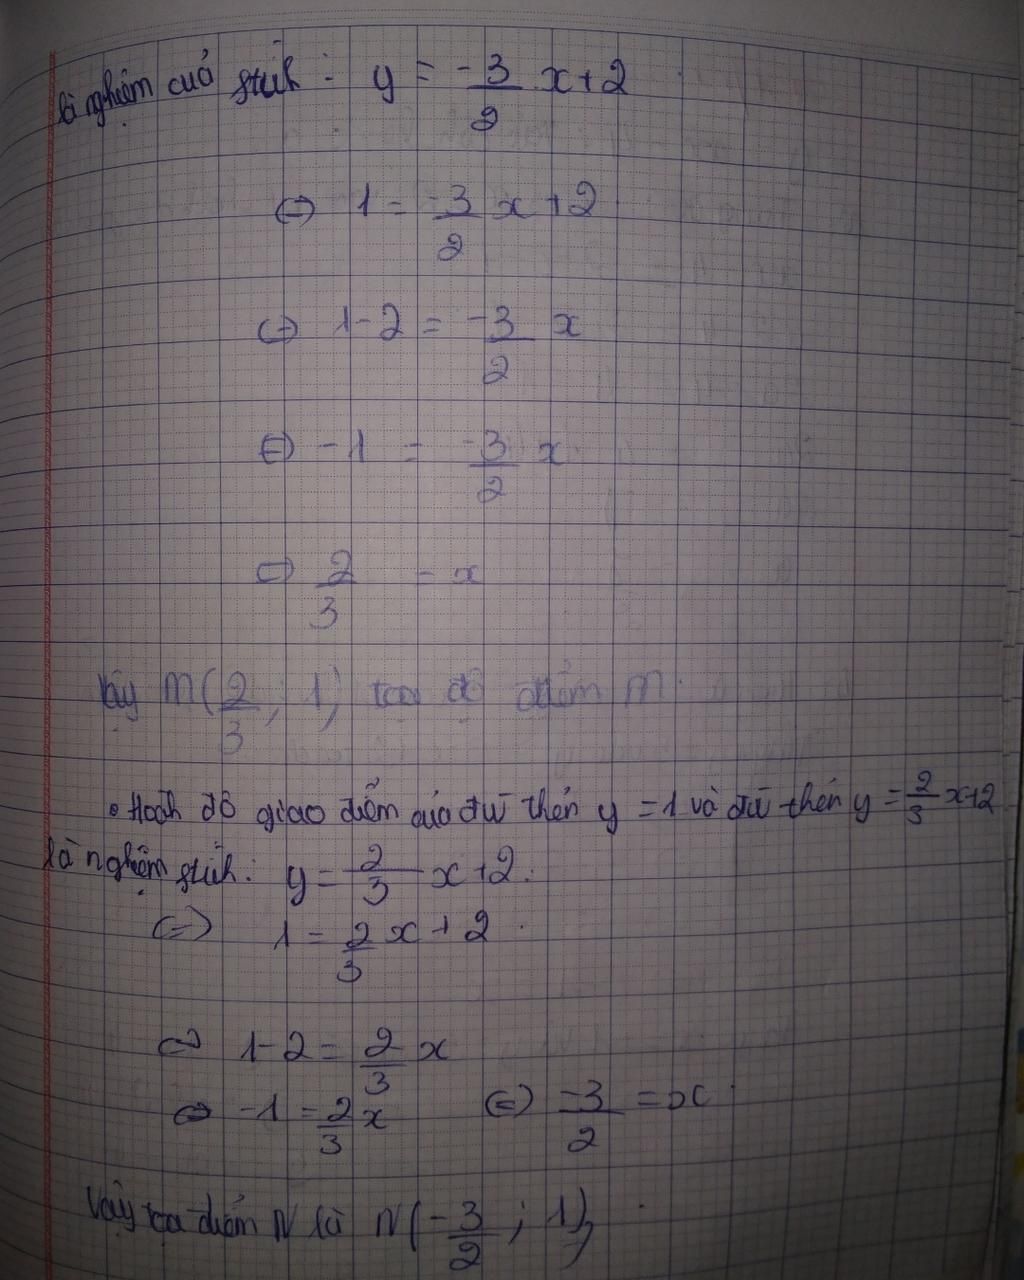 là nghiệm cuả ptrình : y = -3/2 x+2
<=> 1 = -3/2 x +2
<=> 1-2 = -3/2 x
<=> -1 = -3/2 x
<=> 2/3 = x
Vậy M(2/3 ; 1) toạ độ điểm M.
• Hoành độ giao điểm của đư thẳn y = 1 và đư thẳn y = 2/3 x+2
là nghiệm : y = 2/3 x+2.
<=> 1 = 2/3 x + 2
<=> 1-2 = 2/3 x
<=> -1 = 2/3 x <=> -3/2 = x
Vậy tọa điểm N là N(-3/2 ; 1)